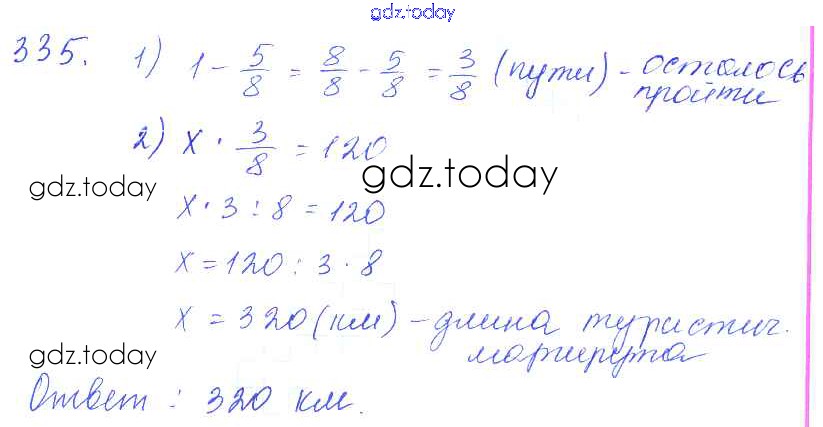 gdz.today
335. 1) 1 - 5/8 = 8/8 - 5/8 = 3/8 (пути) - осталось
пройти
2) x · 3/8 = 120
gdz.today
gdz.today
x · 3 : 8 = 120
x = 120 : 3 · 8
x = 320 (км) - длина туристич.
маршрута
gdz.today
Ответ : 320 км.